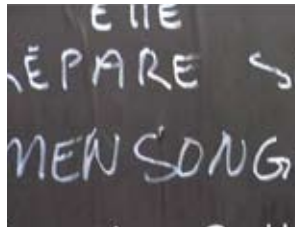 ELLE
RÉPARE S
MENSONG